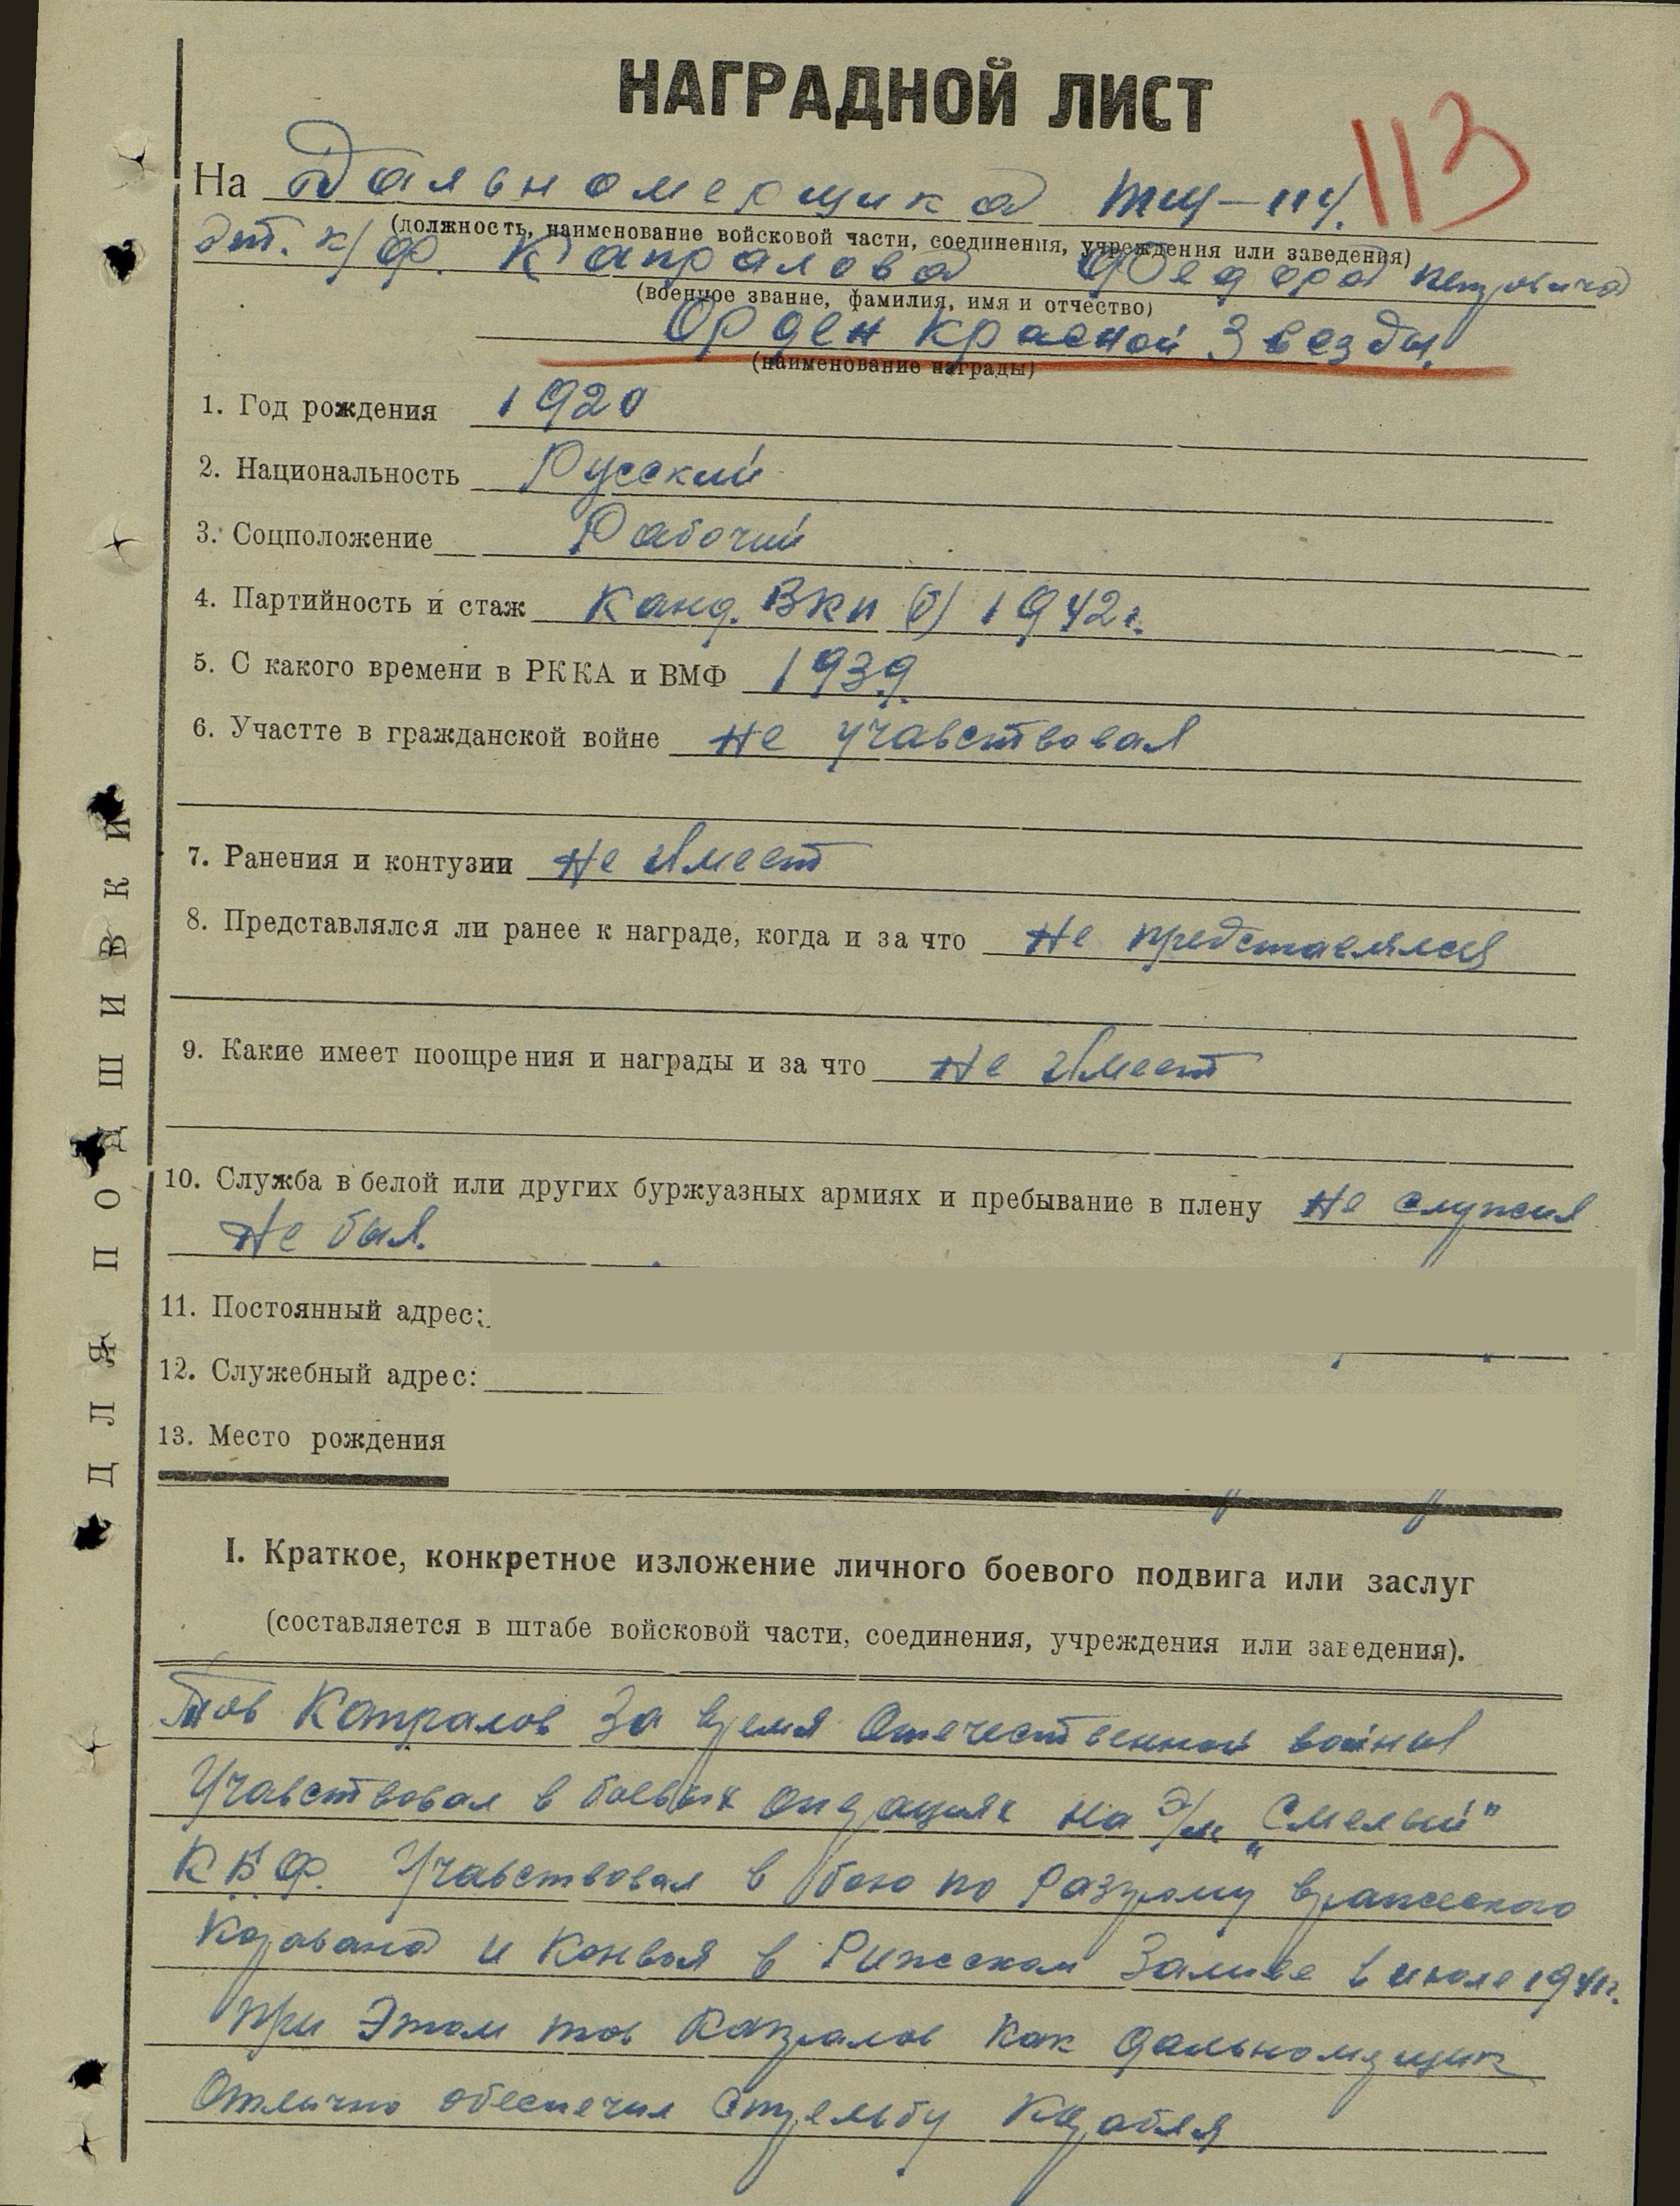 НАГРАДНОЙ ЛИСТ
113
На Дальномерщика ТЩ-114.
(должность, наименование войсковой части, соединения, учреждения или заведения)
к/ф. Капралова Федора Петровича
(военное звание, фамилия, имя и отчество)
Орден Красной Звезды.
(наименование награды)
1. Год рождения 1920
2. Национальность Русский
3. Соцположение Рабочий
4. Партийность и стаж Канд. ВКП (б) 1942 г.
5. С какого времени в РККА и ВМФ 1939.
6. Участте в гражданской войне не учавствовал
7. Ранения и контузии не имеет
8. Представлялся ли ранее к награде, когда и за что не представлялся
9. Какие имеет поощрения и награды и за что не имеет
10. Служба в белой или других буржуазных армиях и пребывание в плену не служил
не был.
11. Постоянный адрес:
12. Служебный адрес:
13. Место рождения
ДЛЯ ПОДШИВКИ
I. Краткое, конкретное изложение личного боевого подвига или заслуг
(составляется в штабе войсковой части, соединения, учреждения или заведения).
Тов Капралов за время Отечественной войны
Учавствовал в боевых операциях на э/м „Смелый"
КБФ. Учавствовал в бою по разгрому вражеского
каравана и конвоя в Рижском заливе в июле 1941г.
При этом тов Капралов как дальномерщик
Отлично обеспечил стрельбу корабля